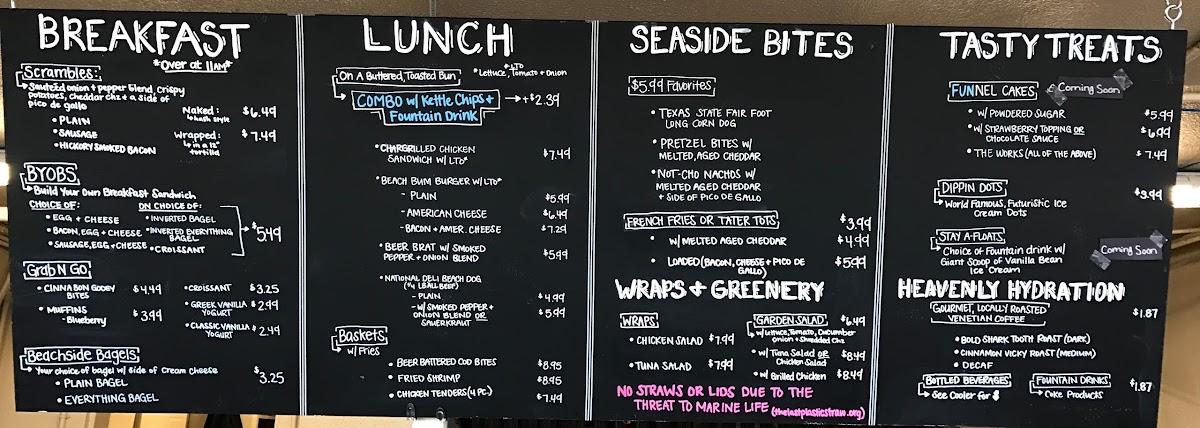 BREAKFAST
*Over at 11AM*
Scrambles:
Sautéed onion + pepper blend, crispy
potatoes, cheddar chz + a side of
pico de gallo
• PLAIN
• SAUSAGE
• HICKORY SMOKED BACON
Naked: $6.49
hash style
Wrapped: $7.49
in a 12"
tortilla
BYOBS
Build Your Own Breakfast Sandwich
CHOICE OF: ON CHOICE OF:
• EGG + CHEESE • INVERTED BAGEL
• BACON, EGG + CHEESE • INVERTED EVERYTHING
BAGEL
• SAUSAGE, EGG + CHEESE • CROISSANT
$5.49
Grab N Go
• CINNABON GOOEY $4.49
BITES
• MUFFINS $3.99
- Blueberry
• CROISSANT $3.25
• GREEK VANILLA $2.99
YOGURT
• CLASSIC VANILLA $2.49
YOGURT
Beachside Bagels
Your choice of bagel w/ side of Cream Cheese $3.25
• PLAIN BAGEL
• EVERYTHING BAGEL
LUNCH
On A Buttered, Toasted Bun
*LTO
*Lettuce, Tomato + Onion
COMBO w/ Kettle Chips + → +$2.39
Fountain Drink
• CHARGRILLED CHICKEN $7.49
SANDWICH W/ LTO*
• BEACH BUM BURGER W/ LTO*
- PLAIN $5.99
- AMERICAN CHEESE $6.49
- BACON + AMER. CHEESE $7.29
• BEER BRAT W/ SMOKED $5.99
PEPPER + ONION BLEND
• NATIONAL DELI BEACH DOG
(1/4 LB ALL BEEF)
- PLAIN $4.99
- W/ SMOKED PEPPER + $5.99
ONION BLEND OR
SAUERKRAUT
Baskets
w/ Fries
• BEER BATTERED COD BITES $8.95
• FRIED SHRIMP $8.95
• CHICKEN TENDERS (4 PC.) $7.49
SEASIDE BITES
$5.99 Favorites
• TEXAS STATE FAIR FOOT
LONG CORN DOG
• PRETZEL BITES W/
MELTED, AGED CHEDDAR
• NOT-CHO NACHOS W/
MELTED AGED CHEDDAR
+ SIDE OF PICO DE GALLO
FRENCH FRIES OR TATER TOTS $3.99
• W/ MELTED AGED CHEDDAR $4.99
• LOADED (BACON, CHEESE + PICO DE $5.99
GALLO)
WRAPS + GREENERY
WRAPS
• CHICKEN SALAD $7.99
• TUNA SALAD $7.99
GARDEN SALAD $6.49
w/ Lettuce, Tomato, Cucumber
Onion + Shredded Chz
• w/ Tuna Salad OR $8.49
Chicken Salad
• w/ Grilled Chicken $8.49
NO STRAWS OR LIDS DUE TO THE
THREAT TO MARINE LIFE (thelastplasticstraw.org)
TASTY TREATS
FUNNEL CAKES Coming Soon
• W/ POWDERED SUGAR $5.99
• W/ STRAWBERRY TOPPING OR $6.99
CHOCOLATE SAUCE
• THE WORKS (ALL OF THE ABOVE) $7.49
DIPPIN DOTS $3.99
World Famous, Futuristic Ice
Cream Dots
STAY A-FLOATS
Choice of Fountain drink w/ Coming Soon
Giant Scoop of Vanilla Bean
Ice Cream
HEAVENLY HYDRATION
GOURMET, LOCALLY ROASTED $1.87
VENETIAN COFFEE
• BOLD SHARK TOOTH ROAST (DARK)
• CINNAMON VICKY ROAST (MEDIUM)
• DECAF
BOTTLED BEVERAGES
See Cooler for $
FOUNTAIN DRINKS $1.87
Coke Products